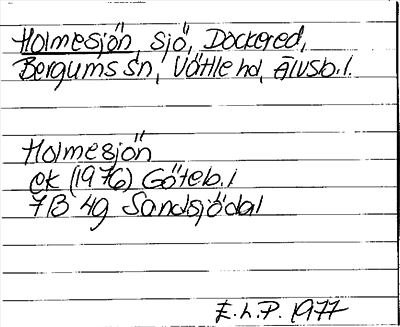 Holmesjön, sjö, Dockered,
Bergums sn, Vättle hd, Älvsb. l.
Holmesjön
ek (1976) Göteb. l
7B 4g Sandsjödal
E.L.P. 1977